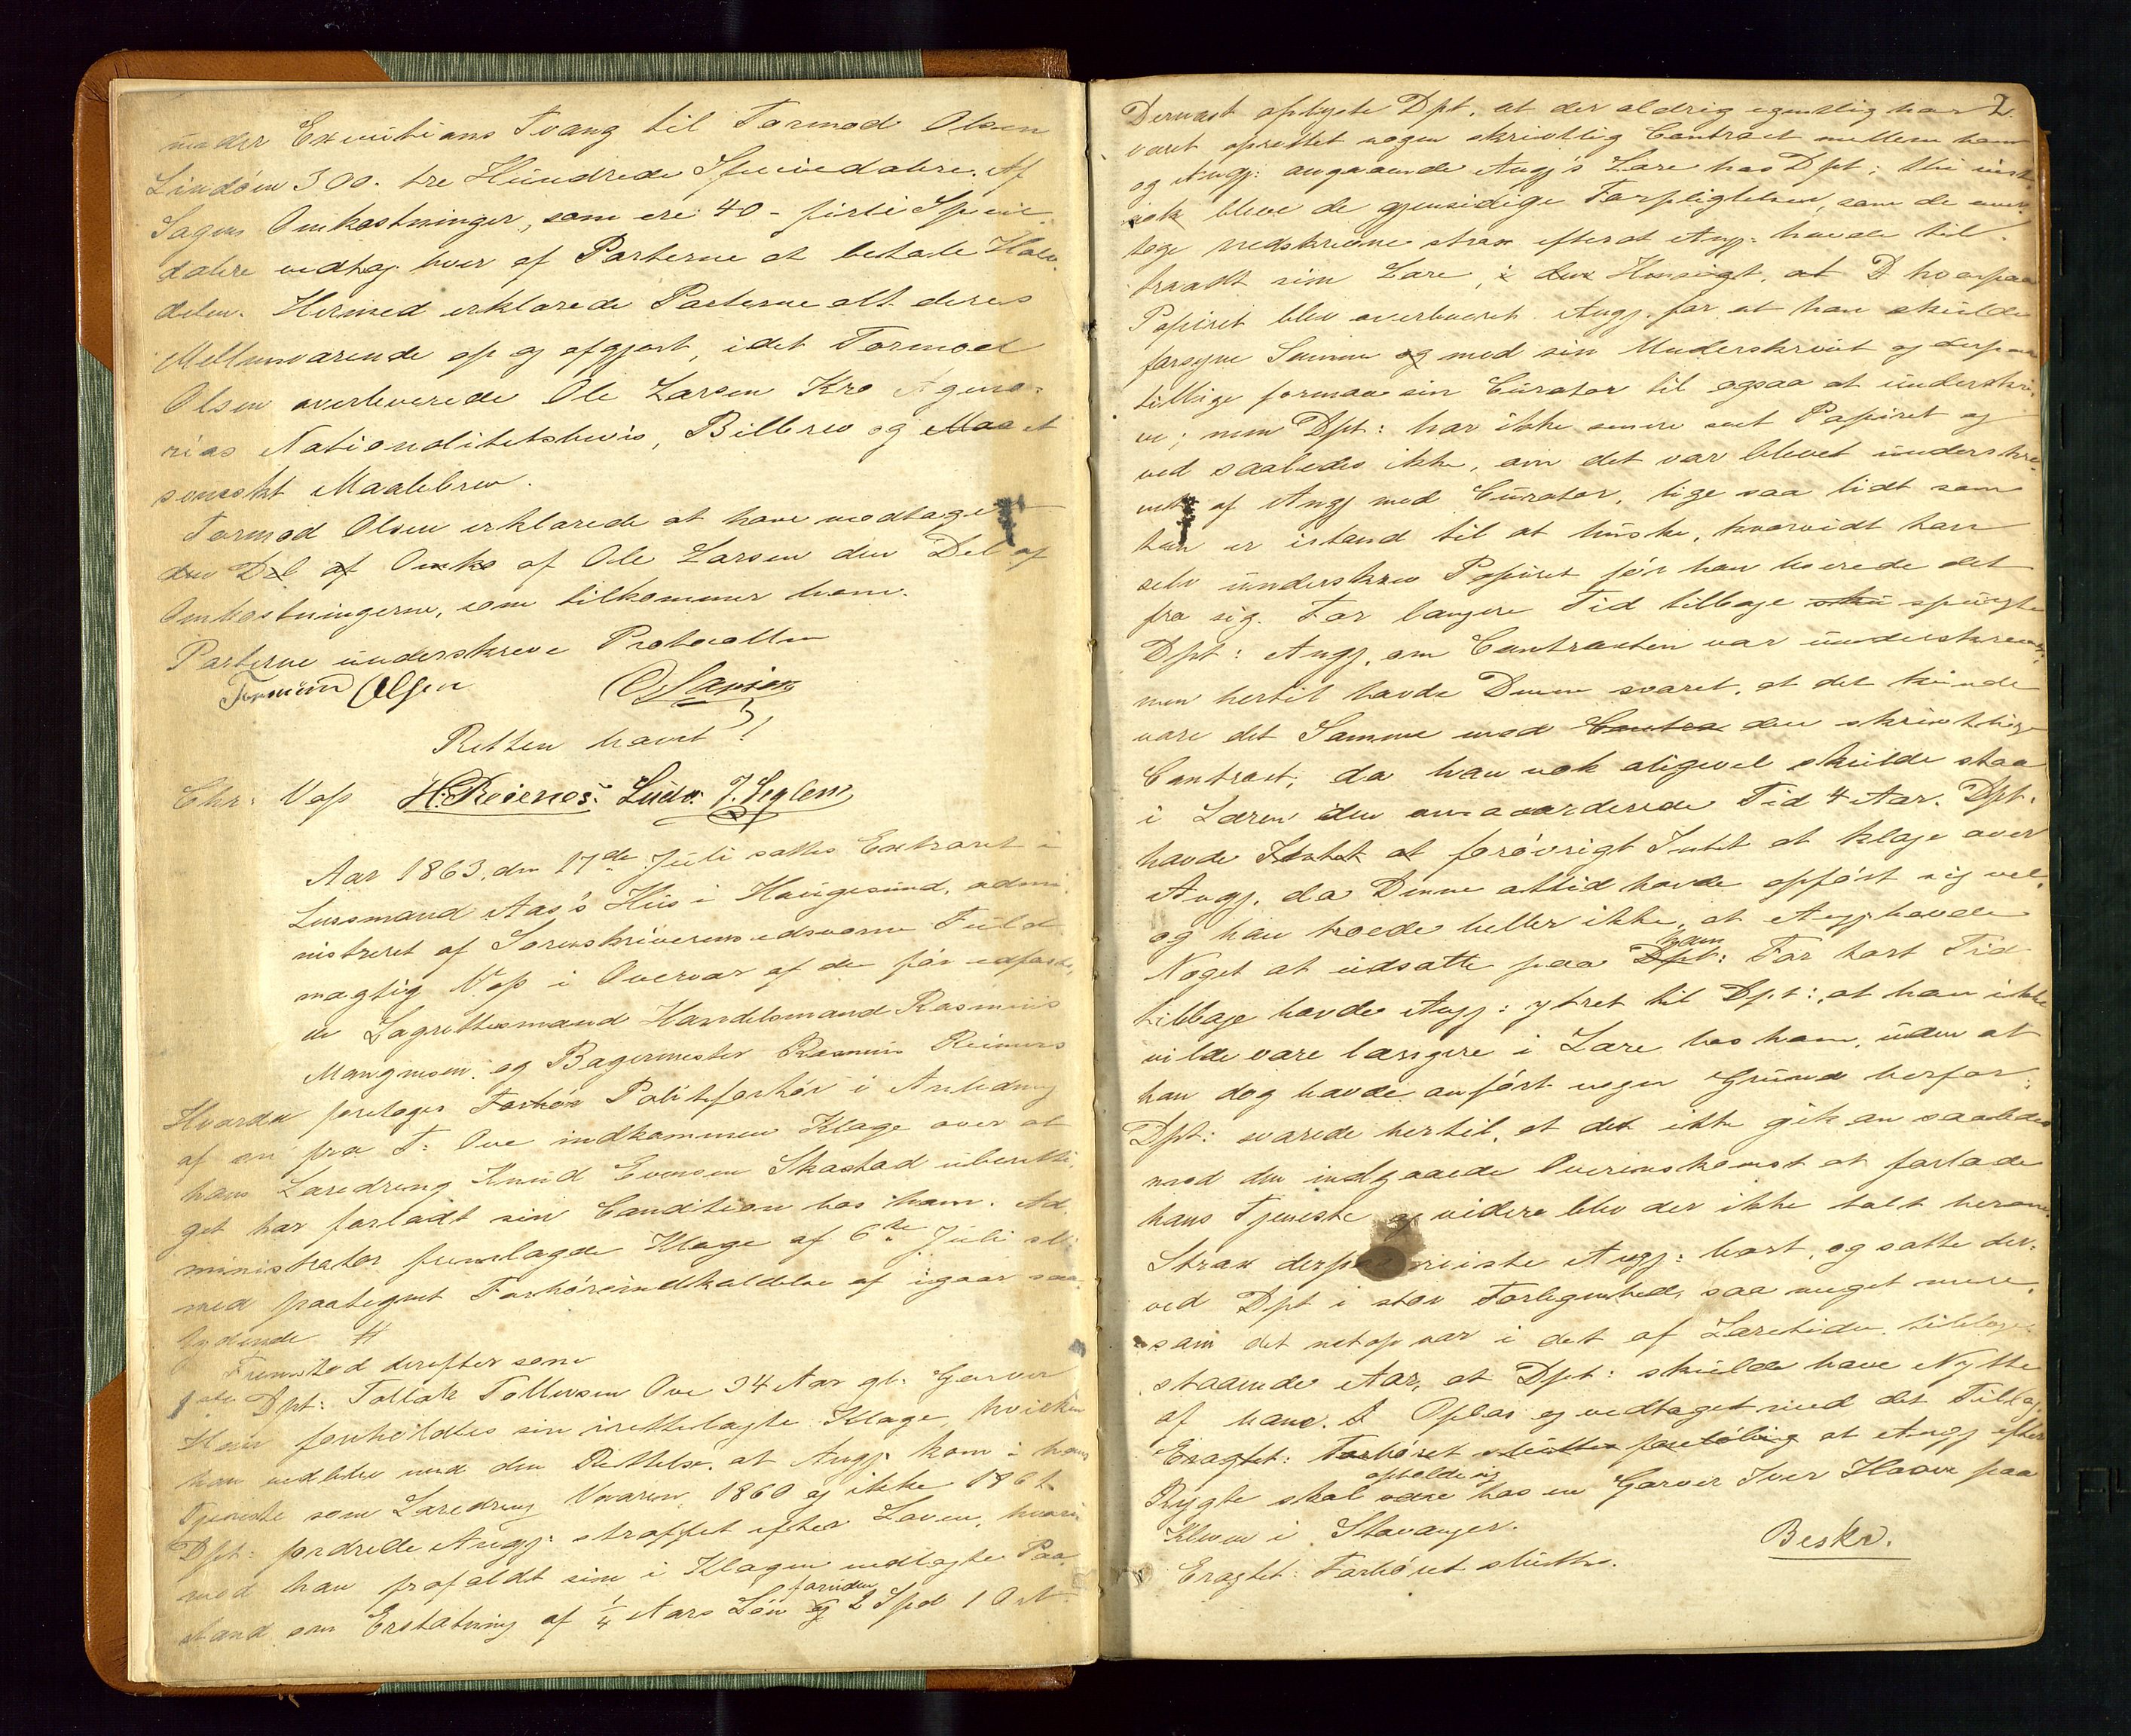 under Executions Tvang til Tormod Olsen
Lindöen 300- tre Hundrede Speciedalere. Af
Sagens Omkostninger, som ere 40- firti Specie
dalere vedtog hver af Parterne at betale Halv-
delen. Hermed erklærede Parterne alt deres
Mellemværende op og afgjort, idet Tormod
Olsen overleverede Ole Larsen Kro
Nationalitetsbevis, Bilbrev og Maa et
svenskt Maalebrev.
Tormod Olsen erklærede at have modtaget
den Del af Omko af Ole Larsen den Del af
Omkostningerne, som tilkommer ham.
Parterne underskreve Protocollen
Olsen O Larsen
Retten hævet!
Chr: Vop H. Reienes. Ludv. J. Seglem
Aar 1863, den 17de Juli sattes Extraret i
Lensmand Aas's Hus i Haugesund, admi-
nistreret af Sorenskriverens edsvorne Fuld
mægtig Vop i Overvær af de før edfæste-
de Lagrettesmænd Handelsmand Rasmus
Mangnesen og Bagermester Rasmus Reimers
Hvorda foretoges Forhör Politiforhör i Anledning
af en fra T: Ove indkommen Klage over at
hans Læredreng Knud Evensen Skastad uberetti-
get har forladt sin Condition hos ham. Ad-
ministrator fremlagde Klage af 6te Juli
med paategnet Forhörsindkaldelse af igaar saa-
lydende #
Fremstod derefter som
1ste Dpt: Tollak Tollevsen Ove 34 Aar gl. Garver
Ham foreholdtes sin irettelagte Klage, hvilken
han vedblev med den Rettelse, at Angj. kom i hans
Tjeneste som Læredreng Vaaren 1860 og ikke 1861.
Dpt: fordrede Angj: straffet efter Loven, hvori
mod han frafaldt sin i Klagen nedlagte Paa-
stand som Erstatning af 1/4 Aars Lön og foruden 2 Spd 1 Ort
2.
Dernæst oplyste Dpt. at der aldrig egentlig har
været oprettet nogen skrivtlig Contract mellem ham
og Angj: angaaende Angj's Lære hos Dpt;
bleve de gjensidige Forpligtelser, som de over
toge nedskrevne strax efterat Angj: havde til-
traadt sin Lære, i den Hensigt, at D hvorpaa
Papiret blev overleveret Angj. for at han skulde
forsyne Samme og med sin Underskrivt og derpaa
tillige formaae sin Curator til ogsaa at underskri-
ve; men Dpt: har ikke senere seet Papiret og
ved saaledes ikke, om det var blevet underskre-
vet af Angj med Curator, lige saa lidt som
han er istand til at huske, hvorvidt han
selv underskrev Papiret før han leverede det
fra sig. For længere Tid tilbage spurgte
Dpt: Angj. om Contracten var underskreven;
men hertil havde Denne svaret, at det kunde
være det Samme med Contra den skrivtlige
Contract, da han nok aligevel skulde staa
i Læren den omaccorderede Tid 4 Aar. Dpt.
havde Intet at forövrigt Intet at klage over
Angj. da Denne altid havde opfört sig vel,
og han troede heller ikke, at Angj havde
Noget at udsætte paa Dpt: ham For kort Tid
tilbage havde Angj: ytret til Dpt: at han ikke
vilde være længere i Lære hos ham, uden at
han dog havde anfört nogen Grund herfor;
Dpt: svarede hertil, at det ikke gik an saaledes
mod den indgaaede Overenskomst at forlade
hans Tjeneste og videre blev der ikke talt herom.
Strax derpaa reiste Angj: bort, og satte der-
ved Dpt i stor Forlegenhed, saa meget mere
som det netop var i det af Læretiden tilbage-
staaende Aar, at Dpt: skulde have Nytte
af ham. Oplæst og vedtaget med det Tillæg
Eragtet: Forhöret sluttes foreløbig at Angj efter
Rygte skal være opholde sig hos en Garver Iver Haave paa
Kleven i Stavanger.
Beskr.
Eragtet: Forhöret sluttes.